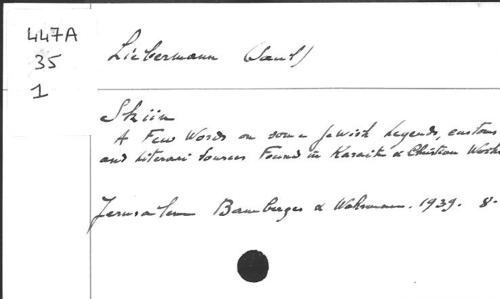 447A
35
1
Liebermann (Saul)
Skiin
A Few Words on some Jewish Legends, customs
and Literari Sources Found in Karaite & Christian Works
Jerusalem Bamberger & Wahrmann. 1939. 8-